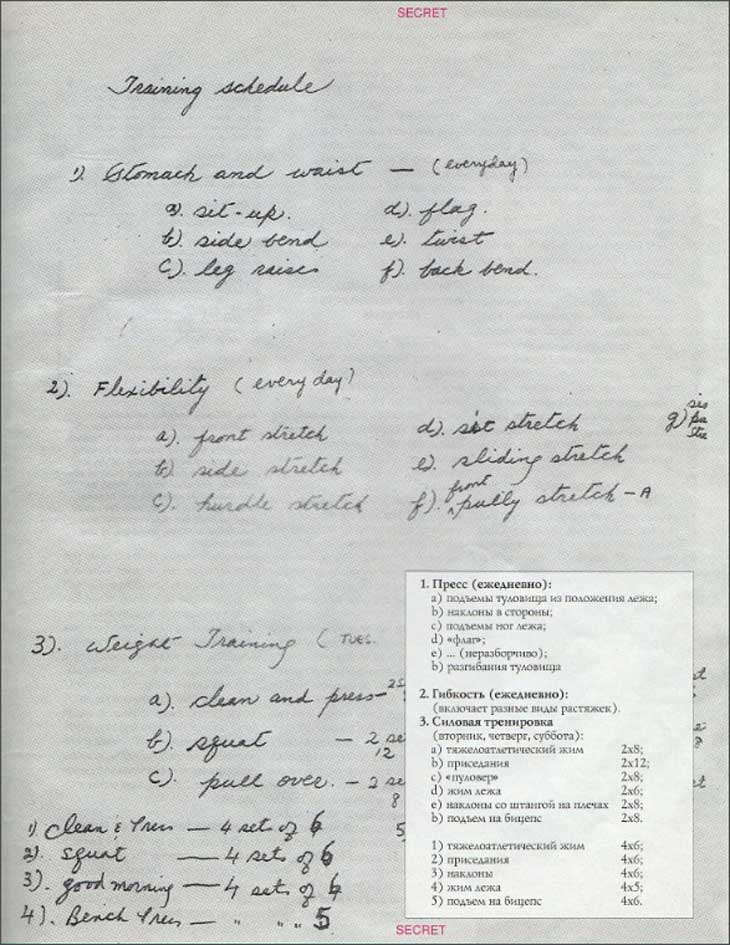 SECRET
Training schedule
1). Stomach and waist — (everyday)
a). sit-up. d). flag.
b). side bend e). twist
c). leg raises f). back bend.
2). Flexibility (everyday)
a). front stretch d). sit stretch g)
b). side stretch e). sliding stretch
c). hurdle stretch f). front pully stretch - A
3). Weight Training (TUES.
a). clean and press-
b). squat - 2 se
12
c). pull over. - 2 se
8
1) Clean & Press — 4 sets of 6
2). squat — 4 sets of 6
3). good morning — 4 sets of 6
4). Bench Press — " " " 5
1. Пресс (ежедневно):
a) подъемы туловища из положения лежа;
b) наклоны в стороны;
c) подъемы ног лежа;
d) «флаг»;
e) ... (неразборчиво);
b) разгибания туловища
2. Гибкость (ежедневно):
(включает разные виды растяжек).
3. Силовая тренировка
(вторник, четверг, суббота):
a) тяжелоатлетический жим 2x8;
b) приседания 2x12;
c) «пуловер» 2x8;
d) жим лежа 2x6;
e) наклоны со штангой на плечах 2x8;
b) подъем на бицепс 2x8.
1) тяжелоатлетический жим 4x6;
2) приседания 4x6;
3) наклоны 4x6;
4) жим лежа 4x5;
5) подъем на бицепс 4x6.
SECRET